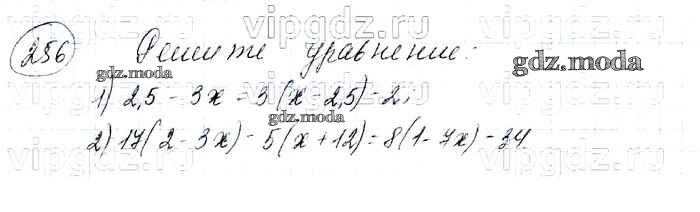 vipgdz.ru vipgdz.ru vipgdz.ru
256 Решите уравнение:
gdz.moda gdz.moda
1) 2,5 - 3x = 3(x - 2,5) - 2;
gdz.moda
2) 17(2 - 3x) - 5(x + 12) = 8(1 - 7x) - 34.
vipgdz.ru vipgdz.ru vipgdz.ru